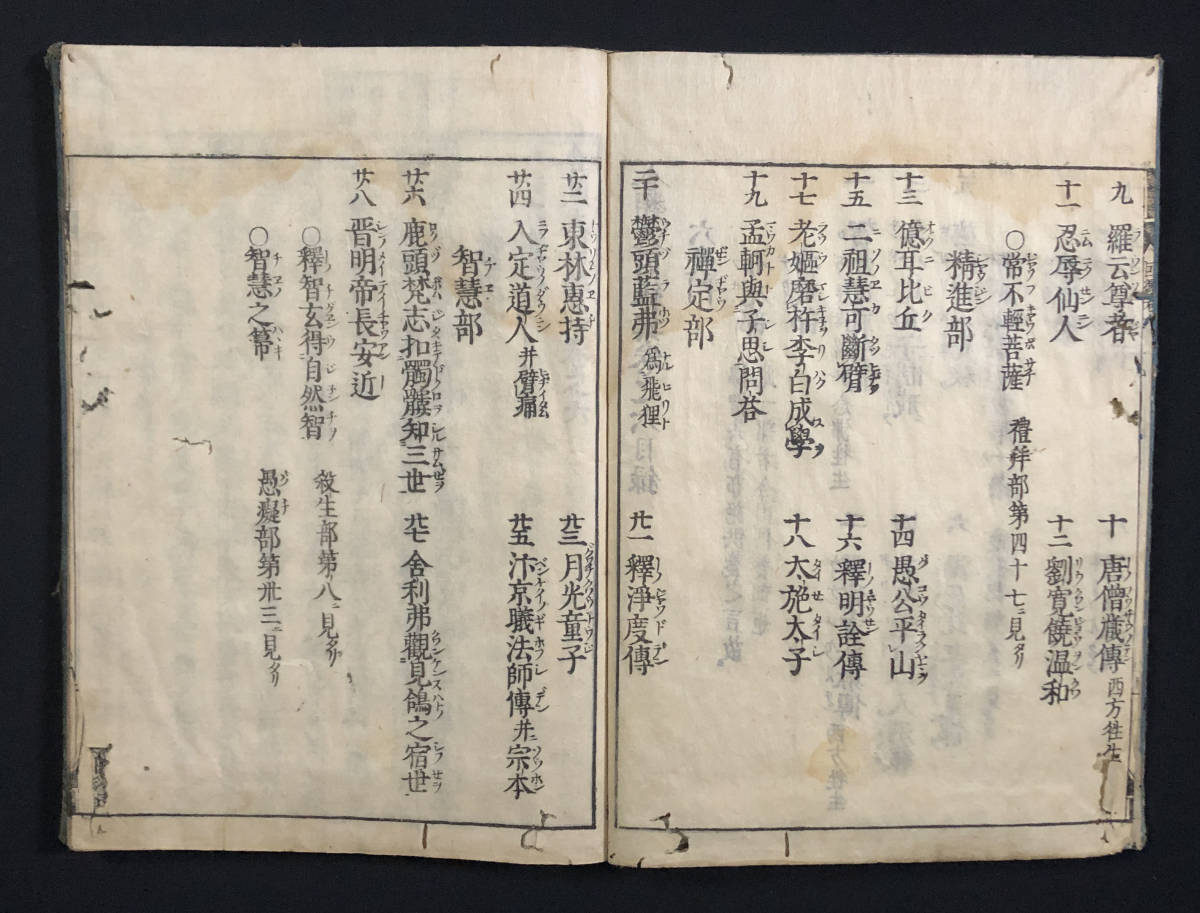 九 羅云尊者 十 唐僧蔵傳 西方徃生
十一 忍辱仙人 十二 劉寛饒温和
○常不輕菩薩 禮拜部第四十七ニ見タリ
精進部
十三 億耳比丘 十四 愚公平山
十五 二祖慧可斷臂 十六 釋明詮傳
十七 老嫗磨杵李白成學 十八 大施太子
十九 孟軻與子思問答
六 禪定部
二十 鬱頭藍弗 爲飛狸 廿一 釋淨度傳
廿二 東林惠持 廿三 月光童子
廿四 入定道人 并臂痛 廿五 汴京曦法師傳 并ニ宗本
智慧部
廿六 鹿頭梵志扣髑髏知三世 廿七 舍利弗觀見鴿之宿世
廿八 晋明帝長安近
○釋智玄得自然智 殺生部第八ニ見タリ
○智慧之箒 愚癡部第卅三ニ見タリ